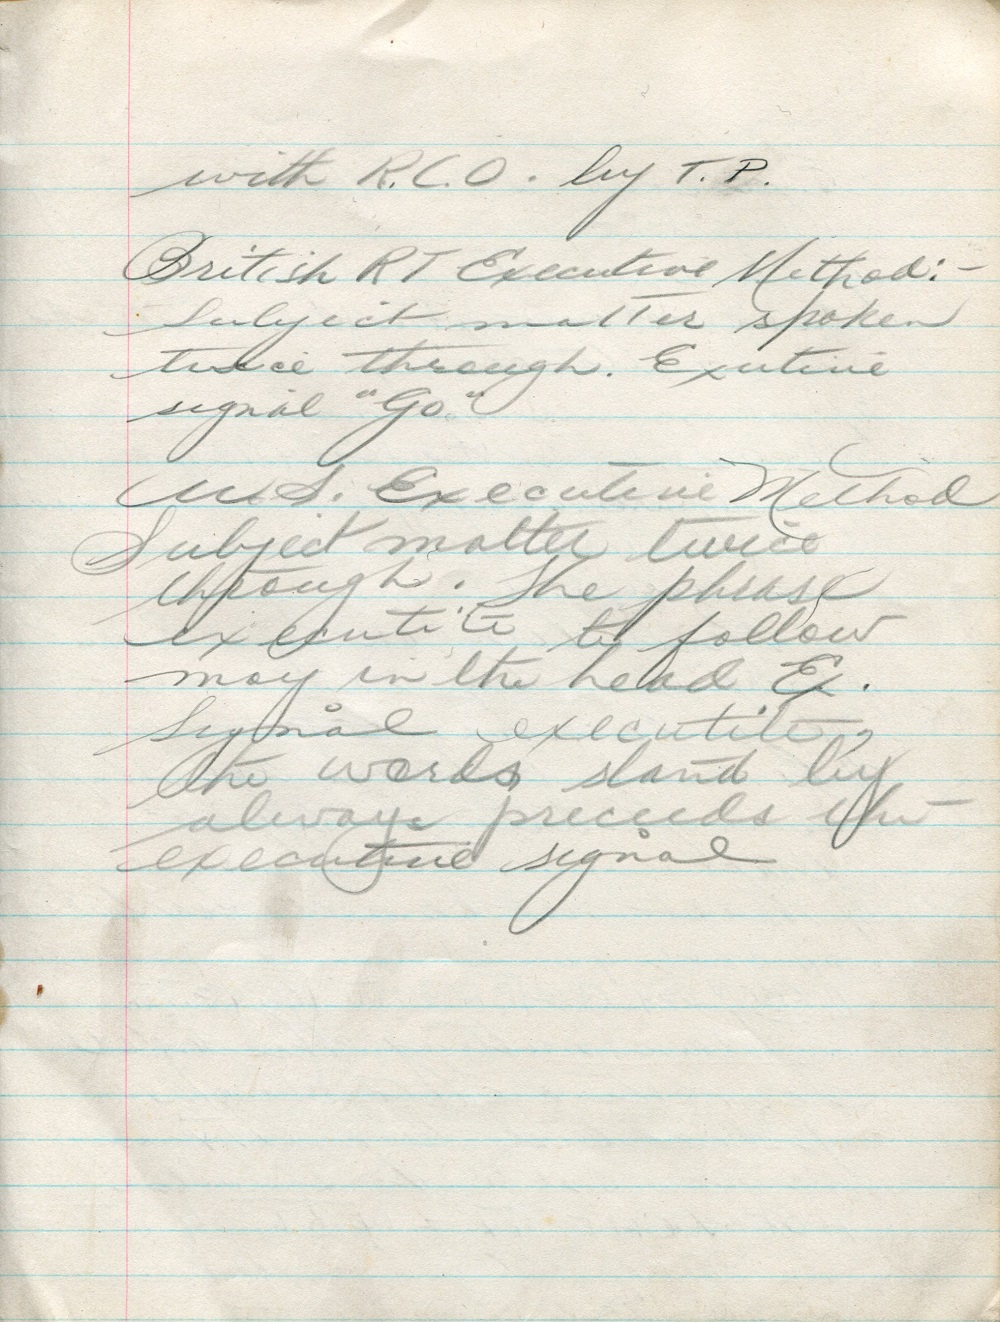 with R.C.O. by T.P.
British RT Executive Method:-
Subject matter spoken
twice through. Exutive
signal "Go"
U.S. Executive Method
Subject matter twice
through. The phrase
executite to follow
may in the head Ex.
Signal executite,
the words stand by
always preceeds the
executive signal